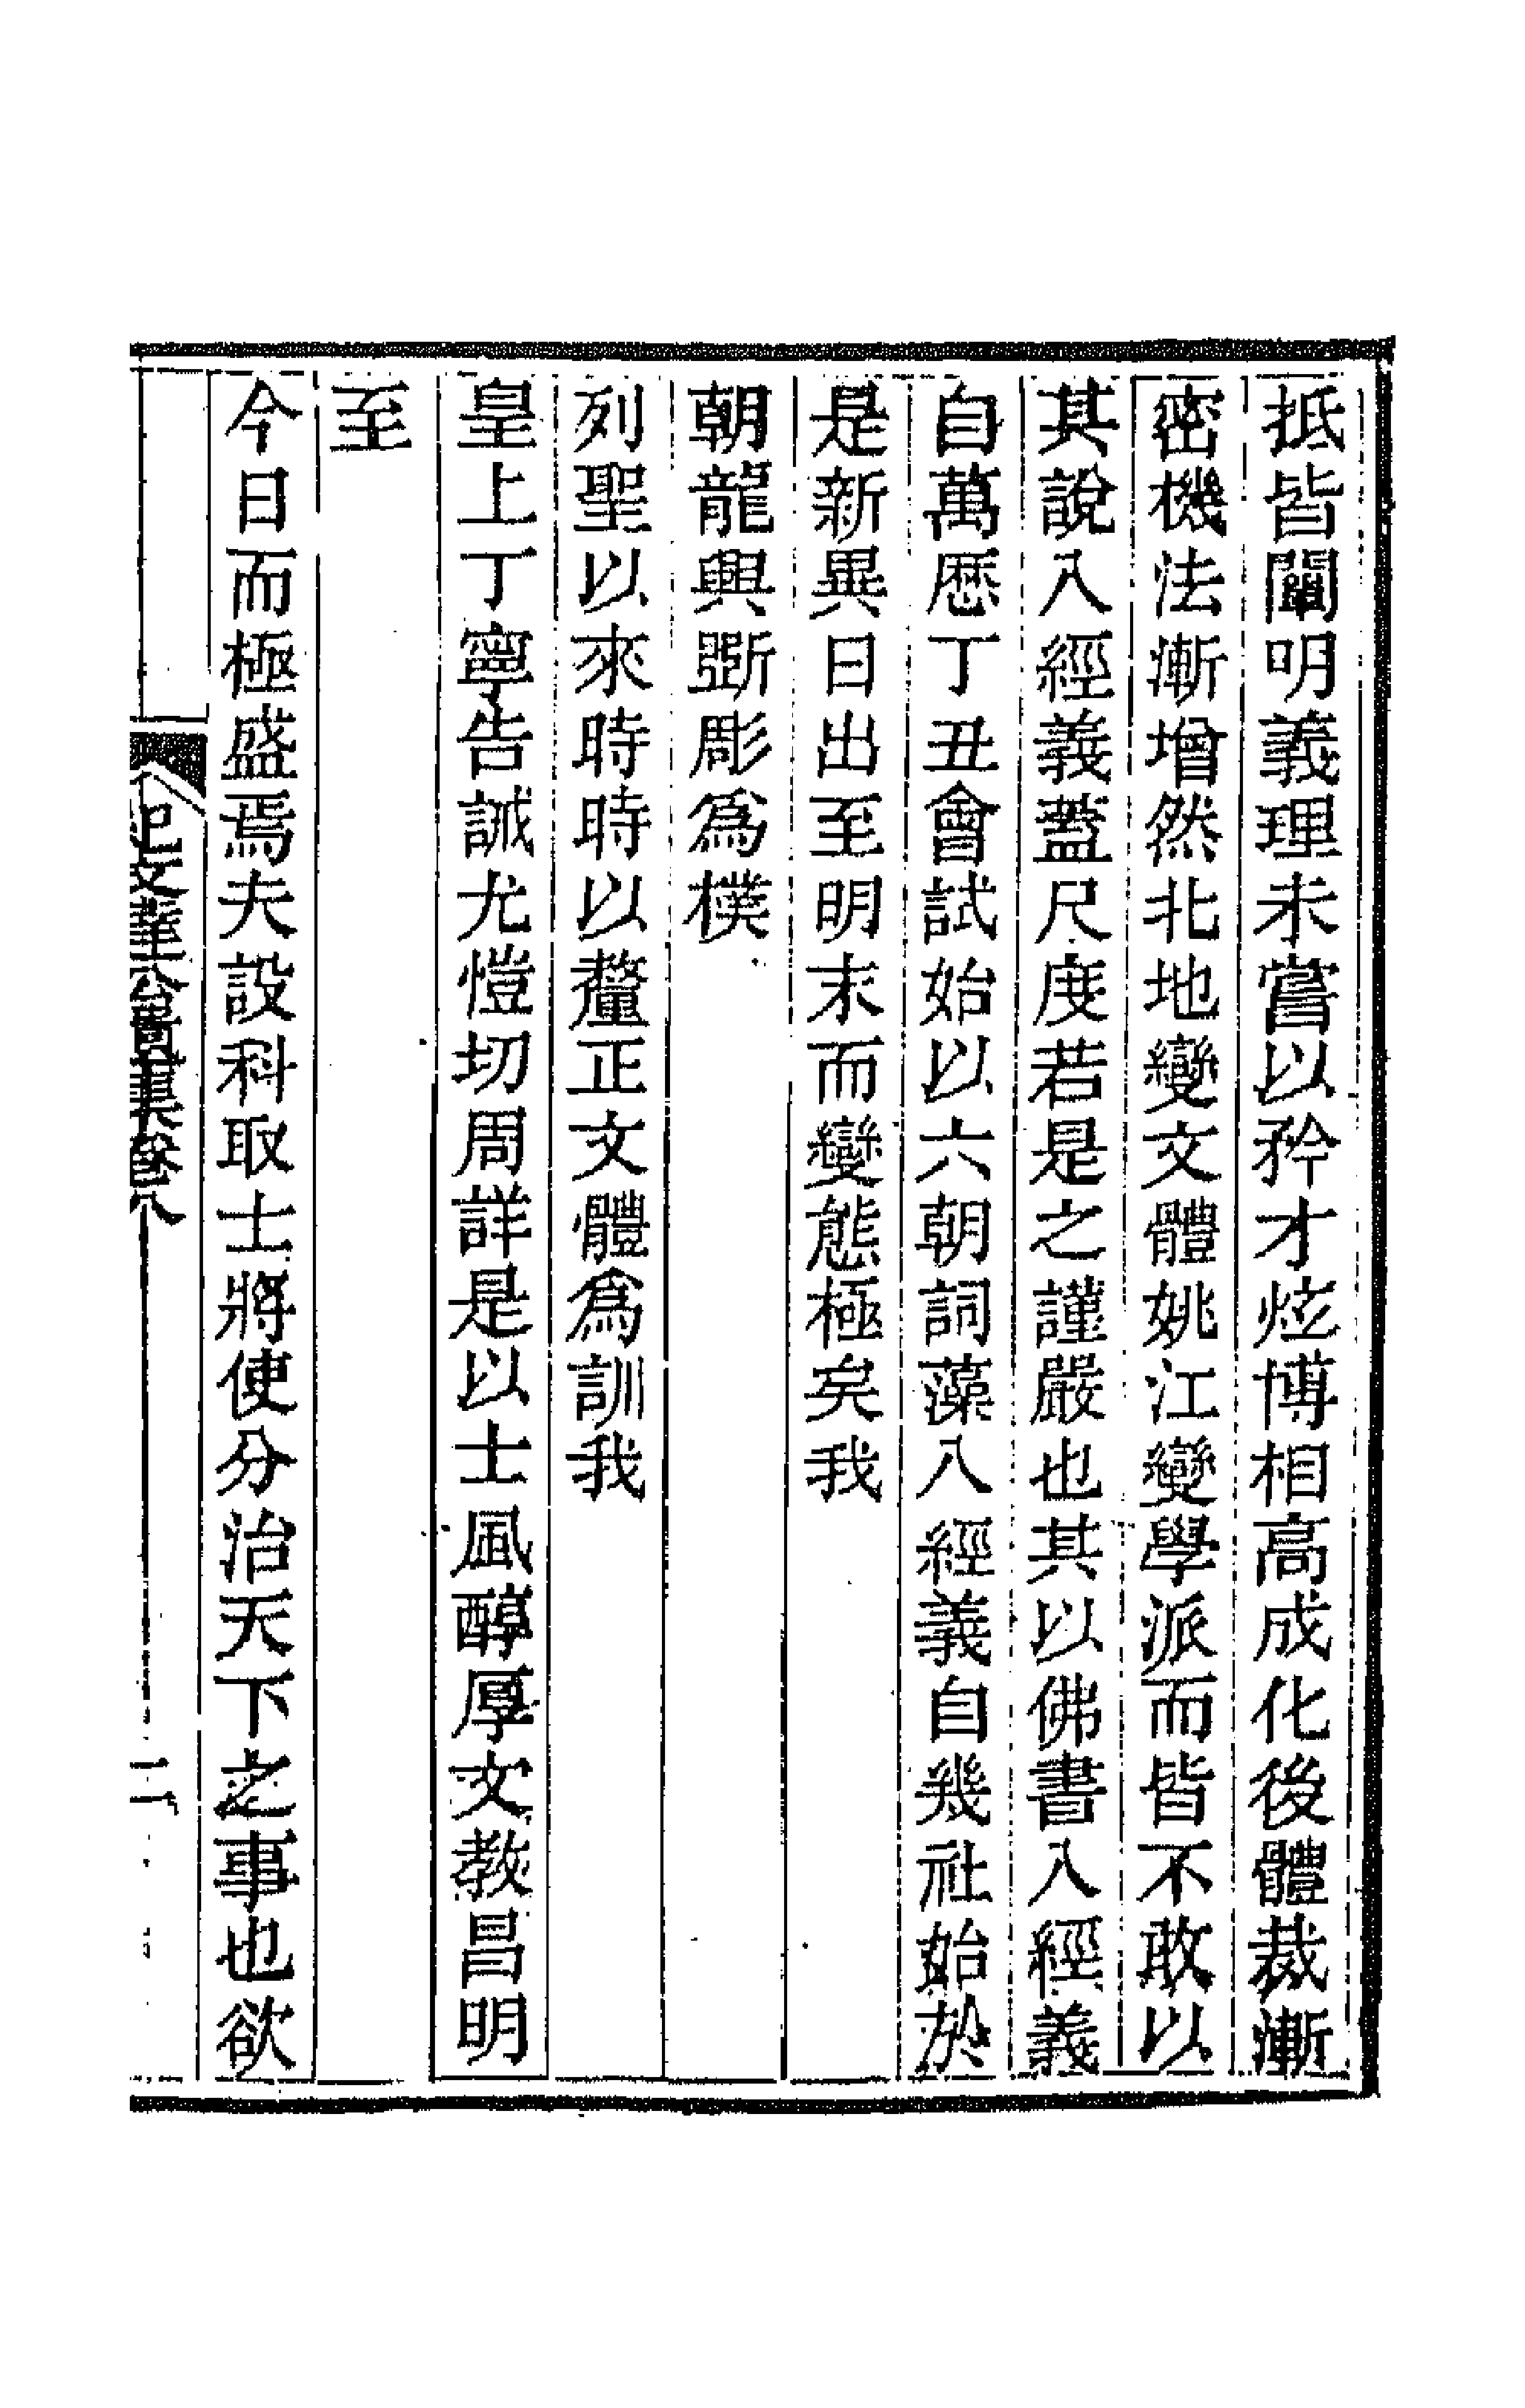 抵皆闡明義理未嘗以矜才炫博相高成化後體裁漸
密機法漸增然北地變文體姚江變學派而皆不敢以
其說入經義蓋尺度若是之謹嚴也其以佛書入經義
自萬厯丁丑會試始以六朝詞藻入經義自幾社始於
是新異日出至明末而變態極矣我
朝龍興斲彫爲樸
列聖以來時時以釐正文體爲訓我
皇上丁寧告誡尤愷切周詳是以士風醇厚文教昌明
至
今日而極盛焉夫設科取士將使分治天下之事也欲
文達公遺集卷八
二